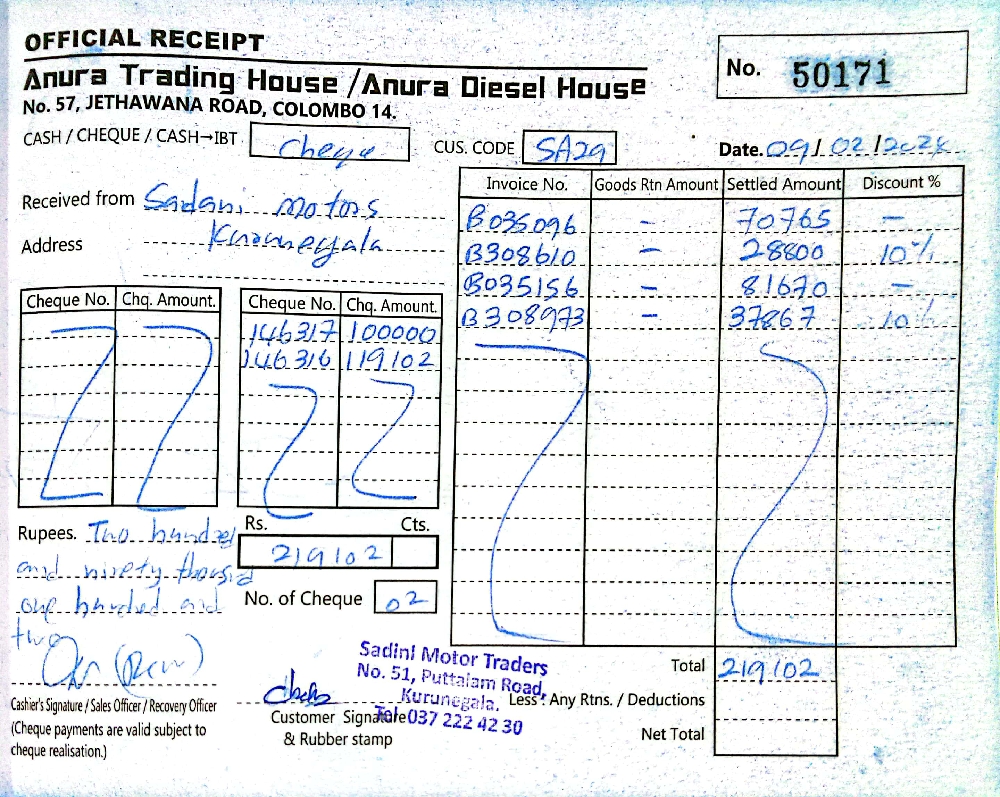 OFFICIAL RECEIPT
Anura Trading House /Anura Diesel House
No. 57, JETHAWANA ROAD, COLOMBO 14.
No. 50171
CASH / CHEQUE / CASH→IBT Cheque
CUS. CODE SA29
Date. 09/ 02 /2024
Received from Sadani motors
Address Kurunegala
Cheque No. Chq. Amount.
Cheque No. Chq. Amount
146317 100000
146316 119102
Invoice No. Goods Rtn Amount Settled Amount Discount %
B035096 - 70765 -
B308610 - 28800 10%
B035156 - 81670 -
B308973 - 37867 10%
Rupees. Two hundred
and ninety thousand
one hundred and
two
Rs. Cts.
219102
No. of Cheque 02
Cashier's Signature / Sales Officer / Recovery Officer
(Cheque payments are valid subject to
cheque realisation.)
Sadini Motor Traders
No. 51, Puttalam Road,
Kurunegala.
Tel: 037 222 42 30
Customer Signature
& Rubber stamp
Total 219102
Less : Any Rtns. / Deductions
Net Total